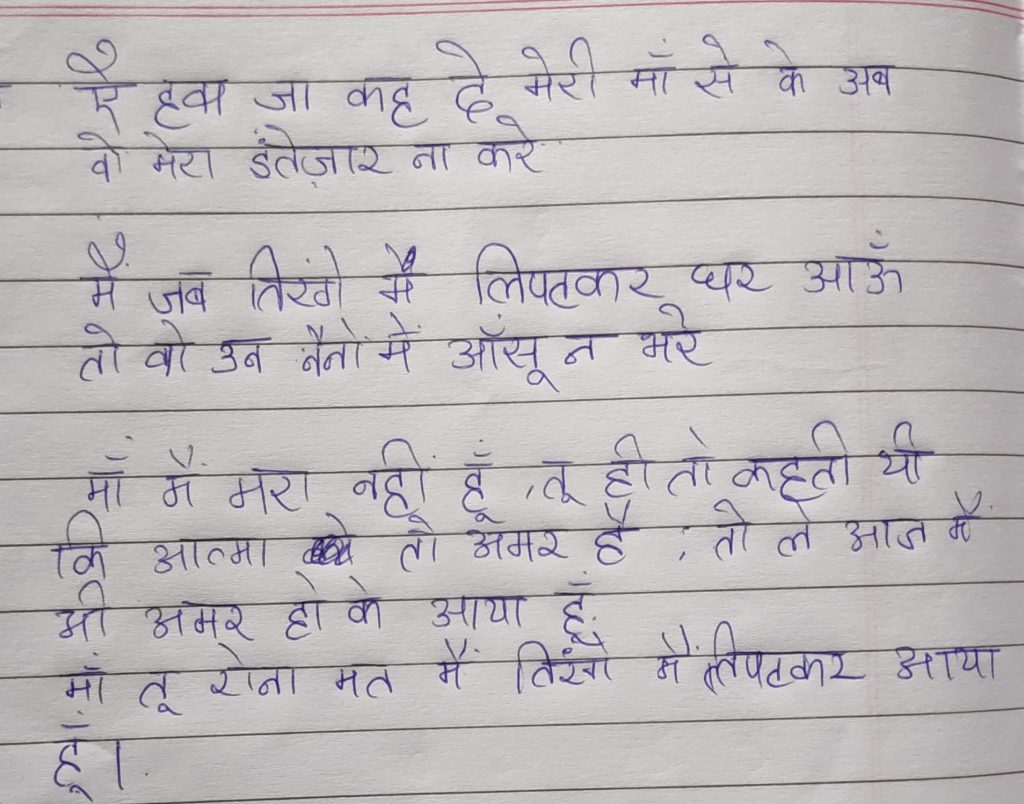 ऐ हवा जा कह दे मेरी माँ से के अब
वो मेरा इंतेज़ार ना करे
मैं जब तिरंगे में लिपटकर घर आऊँ
तो वो उन नैनों में आँसू न भरे
माँ मैं मरा नहीं हूँ, तू ही तो कहती थी
कि आत्मा तो अमर है, तो ले आज मैं
भी अमर हो के आया हूँ
माँ तू रोना मत मैं तिरंगे में लिपटकर आया
हूँ।